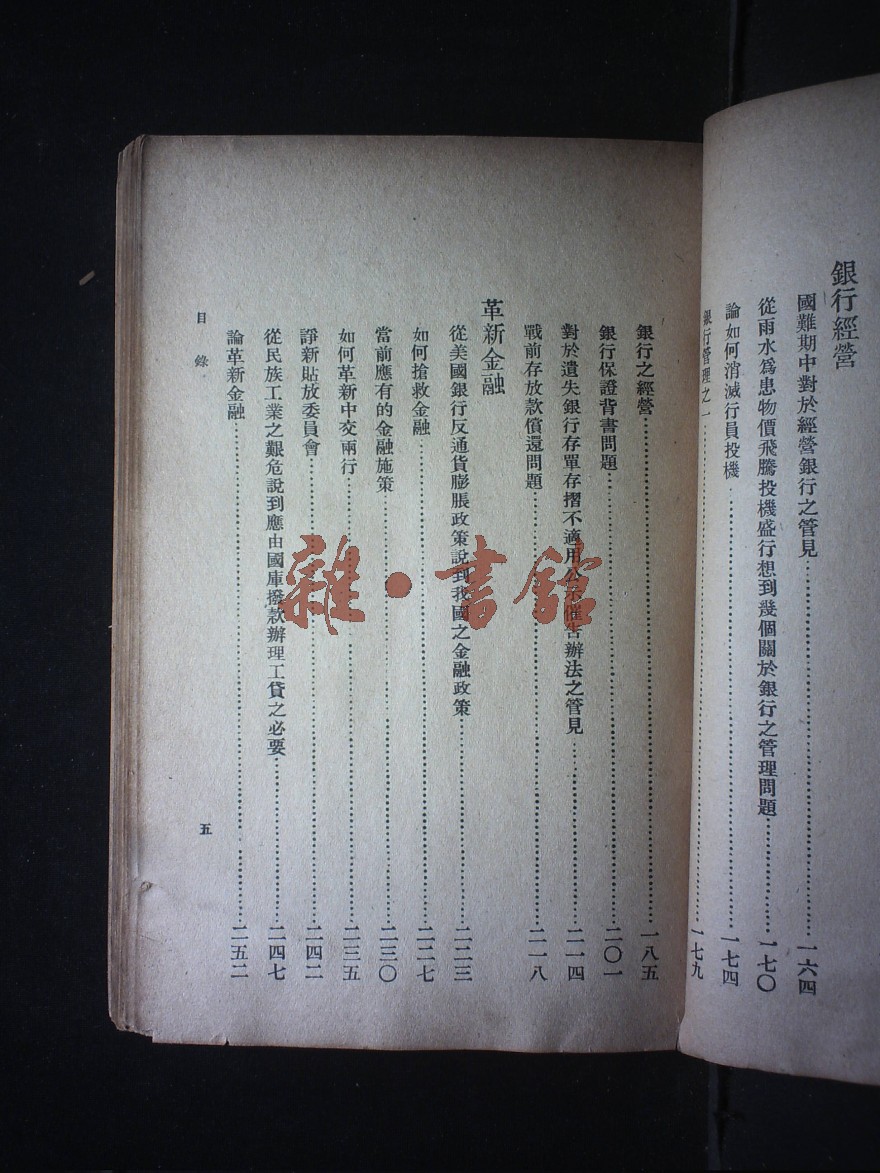 銀行經營
國難期中對於經營銀行之管見…………一六四
從雨水爲患物價飛騰投機盛行想到幾個關於銀行之管理問題…………一七〇
論如何消滅行員投機…………一七四
銀行管理之一…………一七九
銀行之經營…………一八五
銀行保證背書問題…………二〇一
對於遺失銀行存單存摺不適用公示催告辦法之管見…………二一四
戰前存放款償還問題…………二一八
革新金融
從美國銀行反通貨膨脹政策說到我國之金融政策…………二二三
如何搶救金融…………二二七
當前應有的金融施策…………二三〇
如何革新中交兩行…………二三五
諍新貼放委員會…………二四二
從民族工業之艱危說到應由國庫撥款辦理工貸之必要…………二四七
論革新金融…………二五二
目錄
五
雜·書館